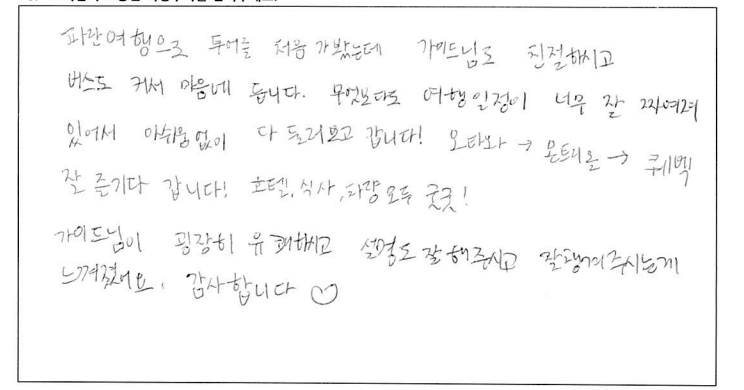 파란여행으로 투어를 처음 가봤는데 가이드님도 친절하시고
버스도 커서 마음에 듭니다. 무엇보다도 여행일정이 너무 잘 짜여져
있어서 아쉬움없이 다 둘러보고 갑니다! 오타와 → 몬트리올 → 퀘벡
잘 즐기다 갑니다! 호텔, 식사, 차량 모두 굿굿!
가이드님이 굉장히 유쾌하시고 설명도 잘해주시고 잘챙겨주시는게
느껴졌어요. 감사합니다 ♡